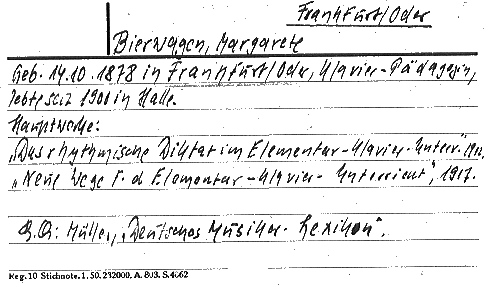 Frankfurt/Oder
Bierwagen, Margarete
Geb. 14.10.1878 in Frankfurt/Oder, Klavier-Pädagogin,
lebte seit 1901 in Halle.
Hauptwerke:
"Das rhythmische Diktat im Elementar-Klavier-Unterr." 1912.
"Neue Wege f. d. Elementar-Klavier-Unterricht", 1917.
Müller, "Deutsches Musiker-Lexikon".
Reg. 10 Stichnote. 1. 50. 232000. A. 803. S. 4662